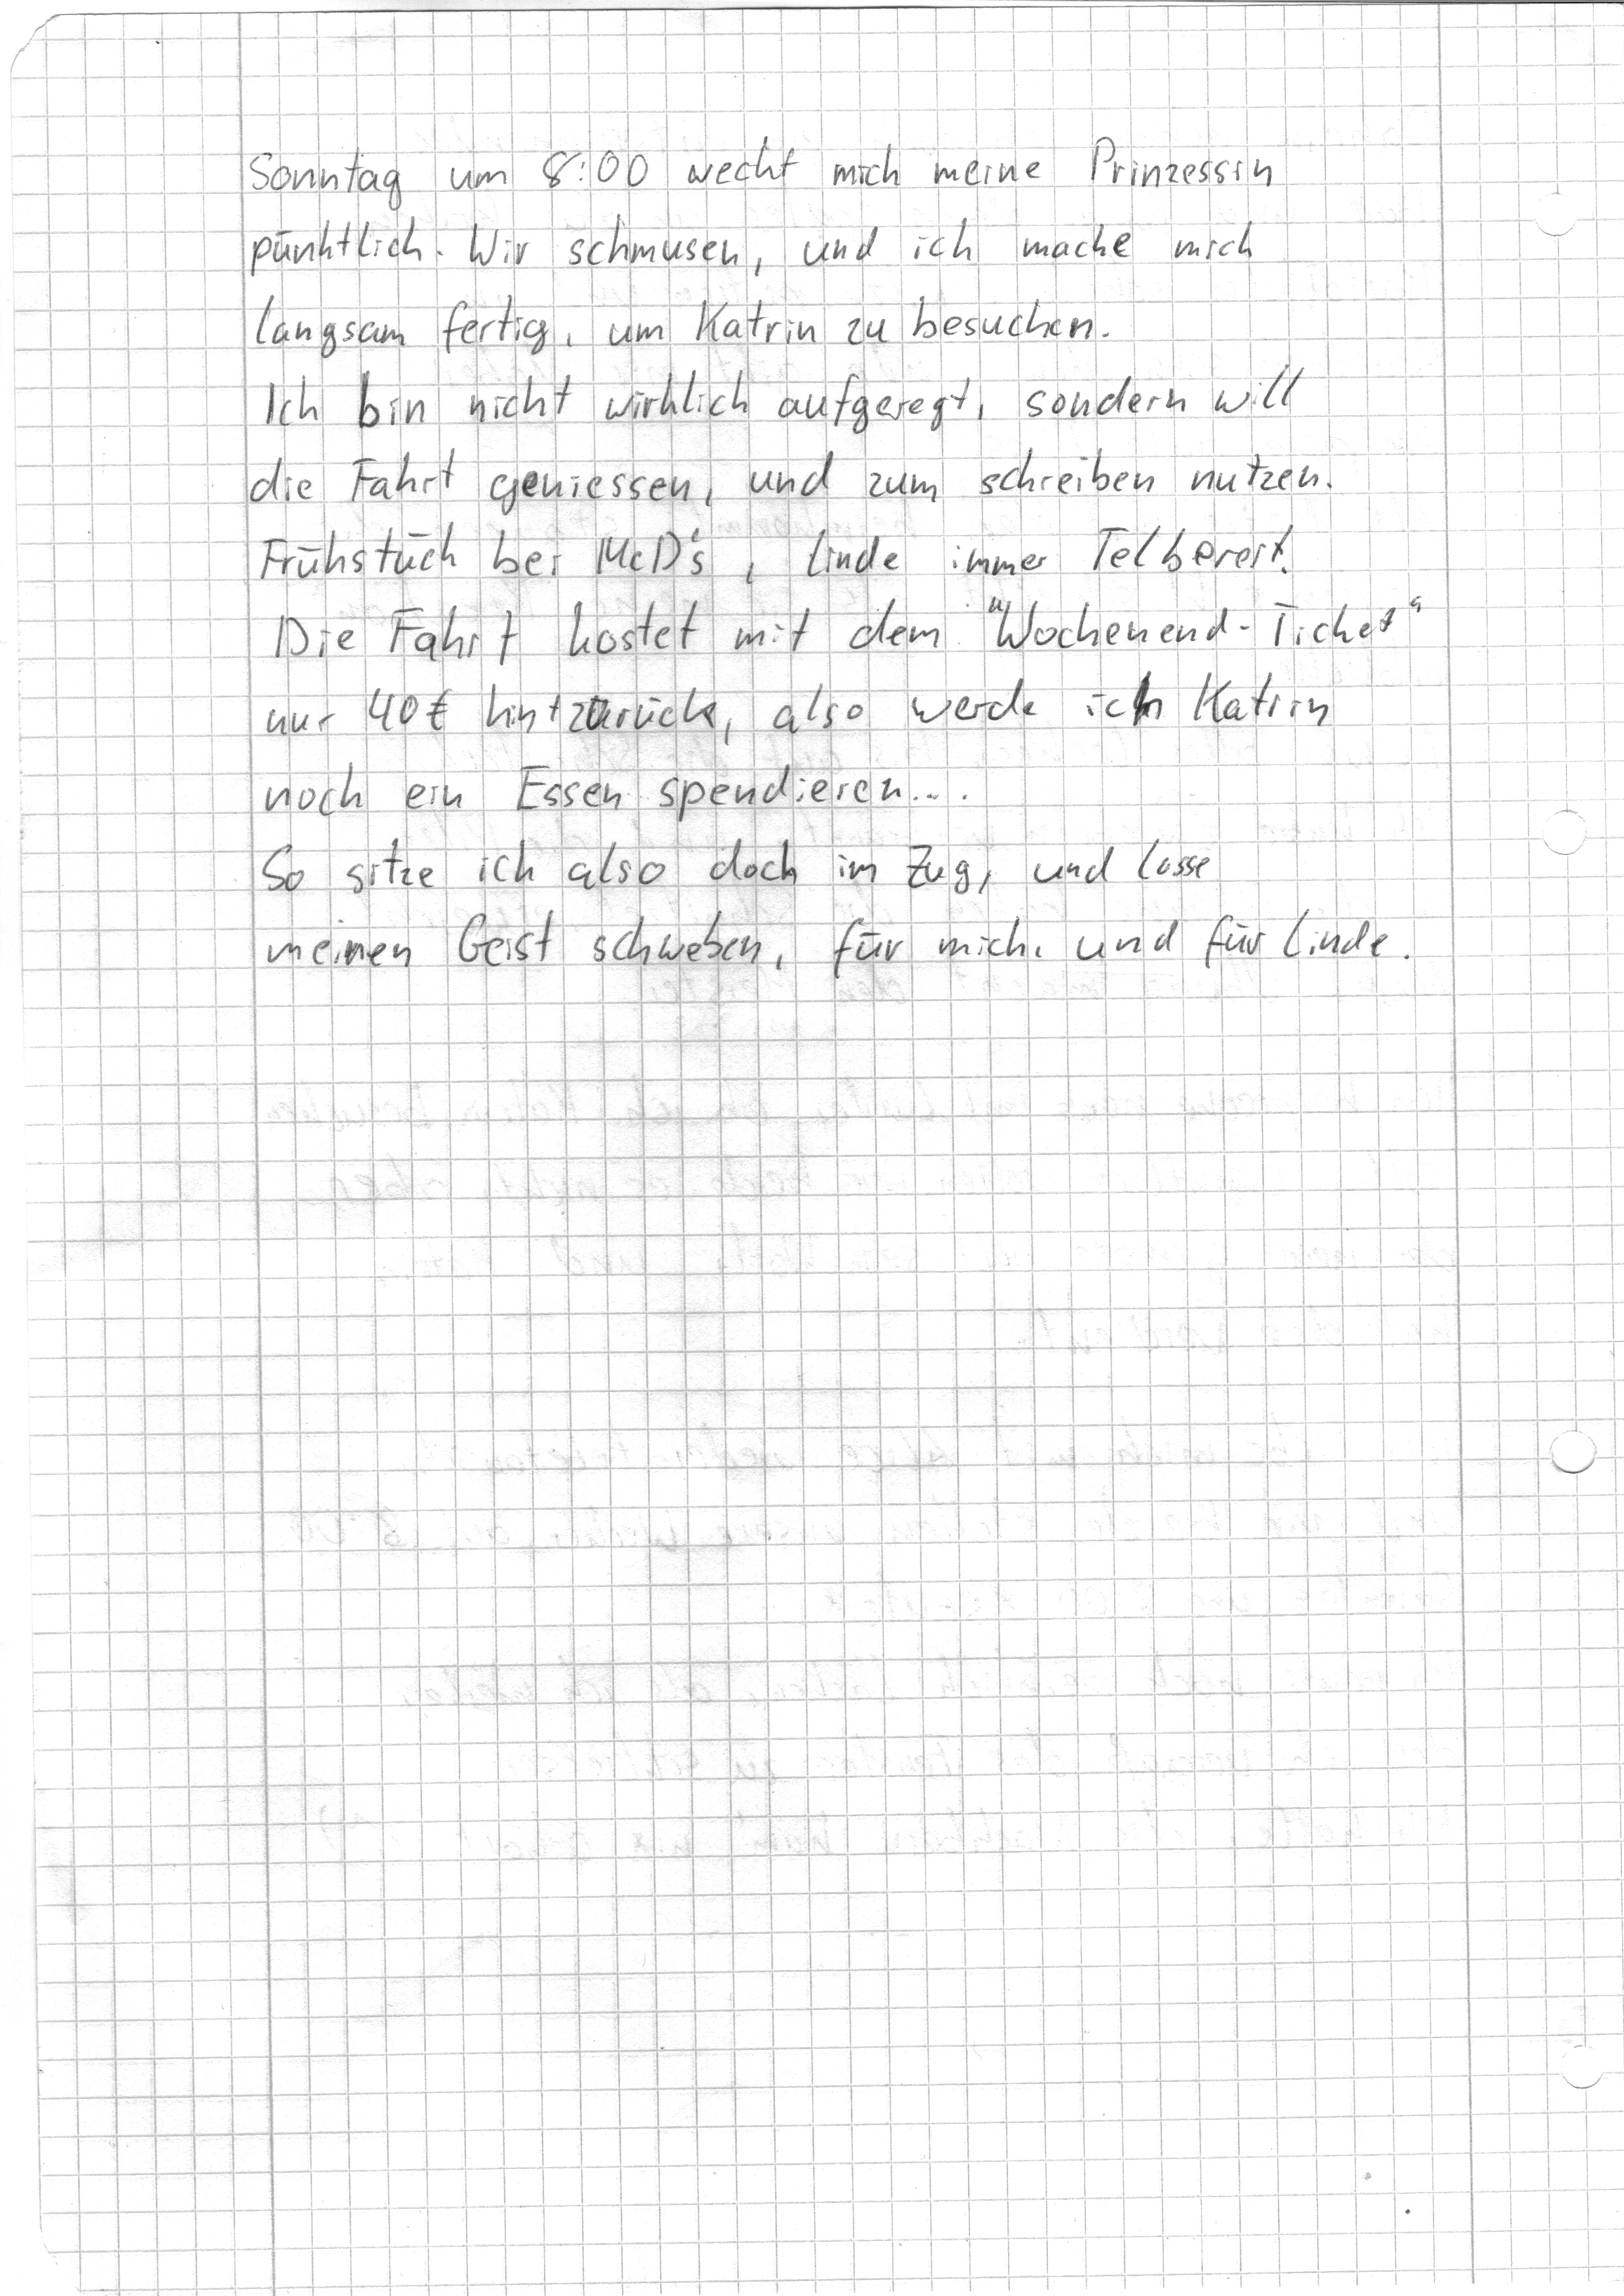 Sonntag um 8:00 weckt mich meine Prinzessin
pünktlich. Wir schmusen, und ich mache mich
langsam fertig, um Katrin zu besuchen.
Ich bin nicht wirklich aufgeregt, sondern will
die Fahrt geniessen, und zum schreiben nutzen.
Frühstück bei McD's, Linde immer Telbereit.
Die Fahrt kostet mit dem "Wochenend-Ticket"
nur 40€ hin+zurück, also werde ich Katrin
noch ein Essen spendieren...
So sitze ich also doch im Zug, und lasse
meinen Geist schweben, für mich, und für Linde.